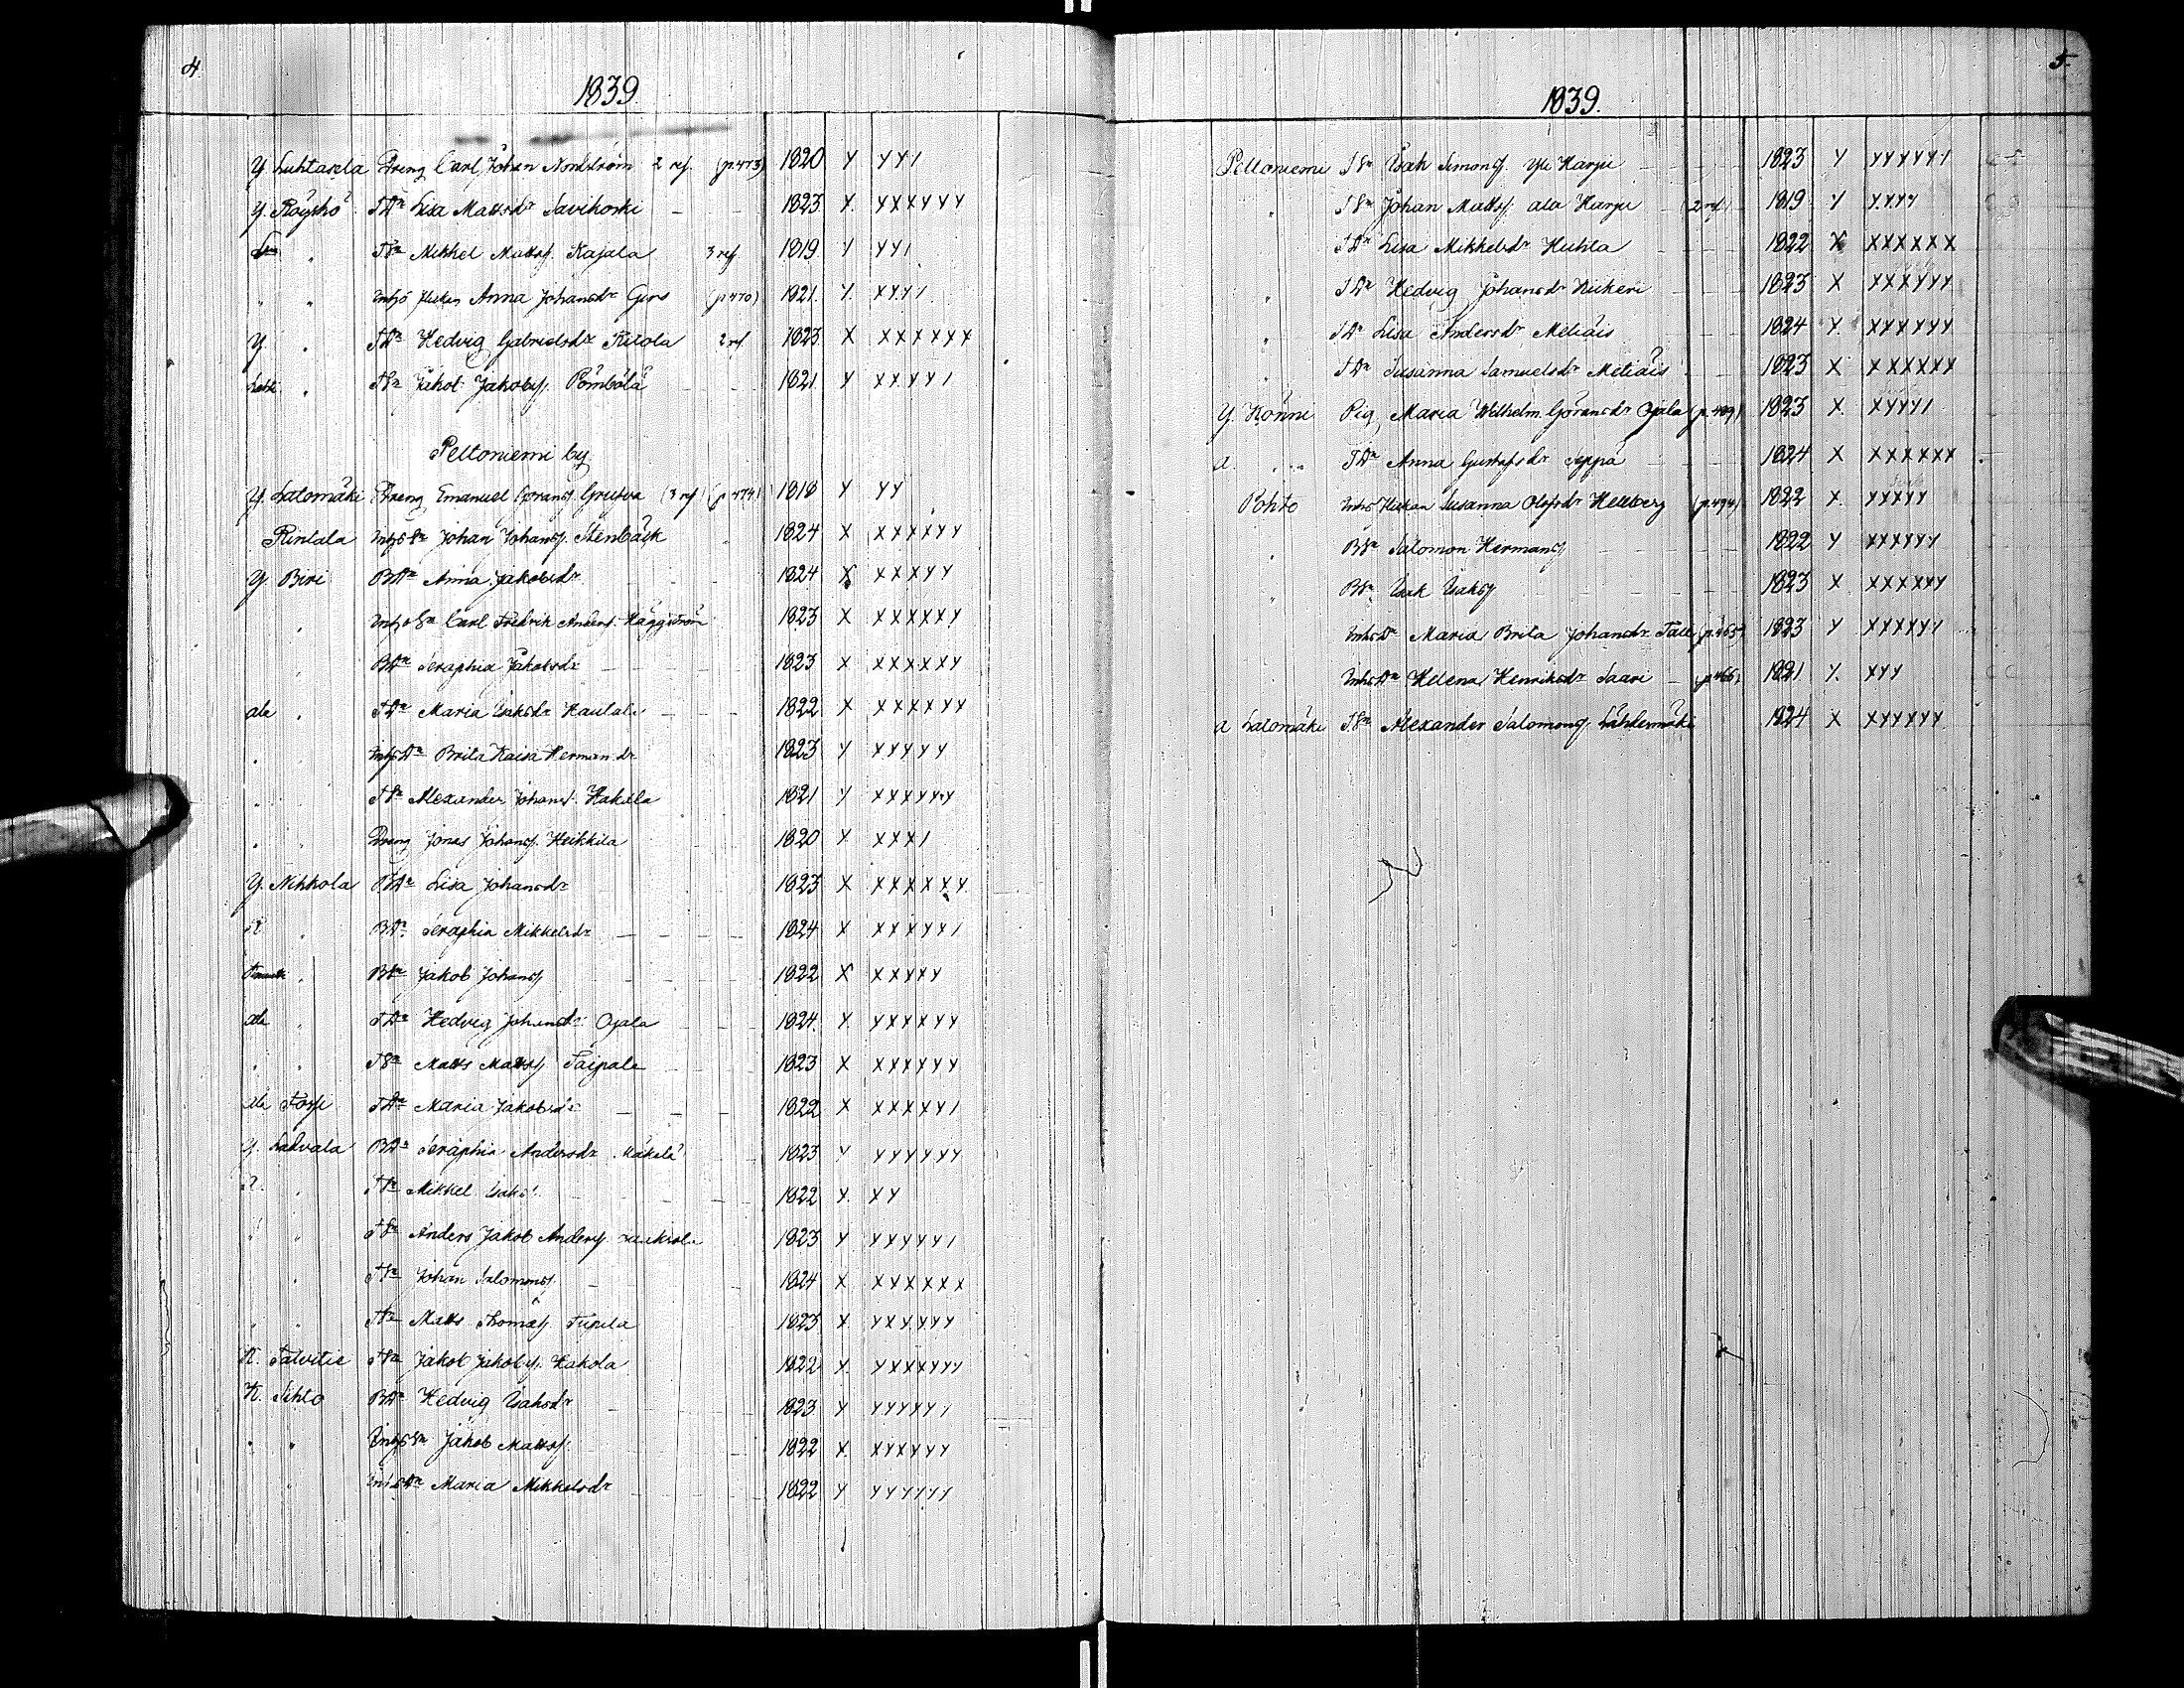 4.
1839.
Y. Luhtasela Dreng Carl Johan Nordström 2 ref. (p. 473) 1820 Y YYI
Y. Röyskö TDr Lisa Mattsdr Savikoski 1823 Y. YXXYYY
" TSn Mikkel Mattss. Kajala 3 ref. 1819 Y YYI
" " Inhs Anna Johansdr Gers (p 470) 1821. Y. XYYI
Y " TDr Hedvig Gabrielsdr Ritola 2 rf. 1823 X XXXXXX
" TSn Jakob Jakobss. Pömbölä 1821 Y XXYYI
Peltoniemi by
Y. Latomäki Dreng Emanuel Göranss. (3 ref) (p 474) 1818 Y YY
Rintala Inhs Sn Johan Johanss. Stenbäck 1824 X XXXXYY
Y Biri BDr Anna Jakobsdr 1824 X XXXYY
" Inhs Sn Carl Fredrik Anderss. Häggström 1823 X XXXXXY
" BDr Seraphia Jakobsdr 1823 X XXXXXY
ala " TDr Maria Isaksdr Hautala 1822 X XXXXYX
" Inhs Dr Brita Kaisa Hermansdr 1823 Y YYYYY
" TSn Alexander Johanss. Hakala 1821 Y XXXYYY
" Dreng Jonas Johanss. Heikkila 1820 Y XXXI
Y. Nikkola BDr Lisa Johansdr 1823 X XXXXXX
" BDr Seraphia Mikkelsdr 1824 X XXYYYI
" BSn Jakob Johanss 1822 X XXYYY
ala " TDr Hedvig Johansdr Ojala 1824. Y. YYXXYY
" " TSn Matts Mattss. Taipale 1823 X XXYYYY
ala TDr Maria Jakobsdr 1822 X XXXXYI
Y. Ladvala BDr Seraphia Andersdr Mäkelä 1823 Y YYYYYY
" TSn Mikkel Isakss. 1822 Y. XY
" " TSn Anders Jakob Anderss. 1823 Y YYYYYI
" TSn Johan Salomonss. 1824 X XYXXXX
" " TSn Matts Thomass. 1823 X YXYYYY
K. Talvitie TSn Jakob Jakobss. Hakola 1822 Y. YXXXYYY
K. Sihto BDr Hedvig Isaksdr 1823 Y YYYYYI
" " Inhs Sn Jakob Mattss. 1822 X. XYXYYY
" Inhs Dr Maria Mikkelsdr 1822 Y YYYYYY
5.
1839.
Peltoniemi TSn Isak Simonss. Yli Harju 1823 Y YYYYYY
" TSn Johan Mattss. ala Harju (2 rf.) 1819 Y YXYY
TDr Lisa Mikkelsdr Huhta 1822 X XXXXXX
" TDr Hedvig Johansdr 1823 X XXXYYY
" TDr Lisa Andersdr Metiäis 1824 Y. XXXXYY
" TDr Susanna Samuelsdr Metiäis 1823 X XXXXXX
Y. Könni Pig. Maria Wilhelm. Göransdr Ojala (p. 489) 1823 X. XYYYI
a. " TDr Anna Gustafsdr Seppä 1824 X XXXXXX
Pohto Inhs Susanna Olofsdr Hellberg (p. 494) 1822 X. YXXYY
" BSn Salomon Hermanss 1822 Y XXXXYY
" BSn Isak Isakss 1823 X XXXXXY
Inhs Dr Maria Brita Johansdr (p. 465) 1823 Y XXXYYI
Inhs Dr Helena Henriksdr Saari (p 466) 1821 Y. XYY
a Latomäki TSn Alexander Salomonss. Lähdemäki 1824 X XYYYYY